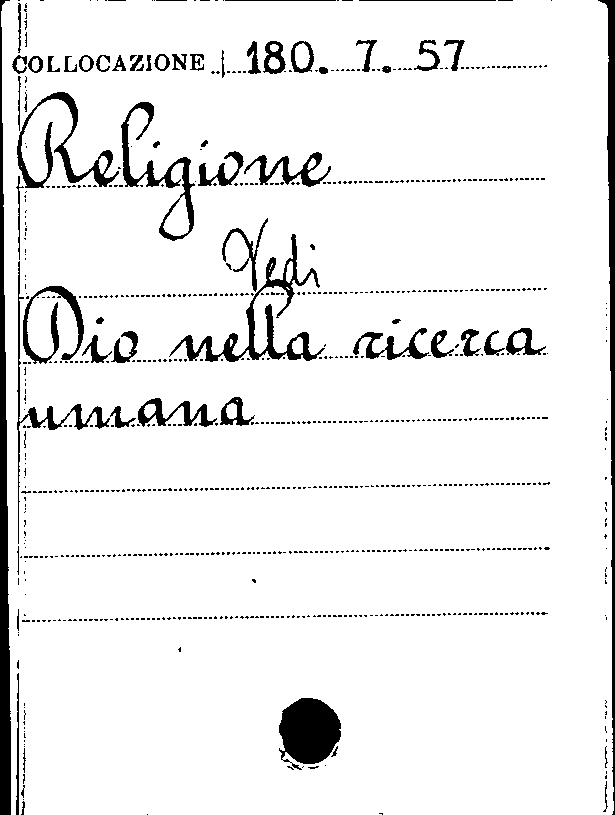 COLLOCAZIONE 180. 7. 57
Religione
Vedi
Dio nella ricerca
umana